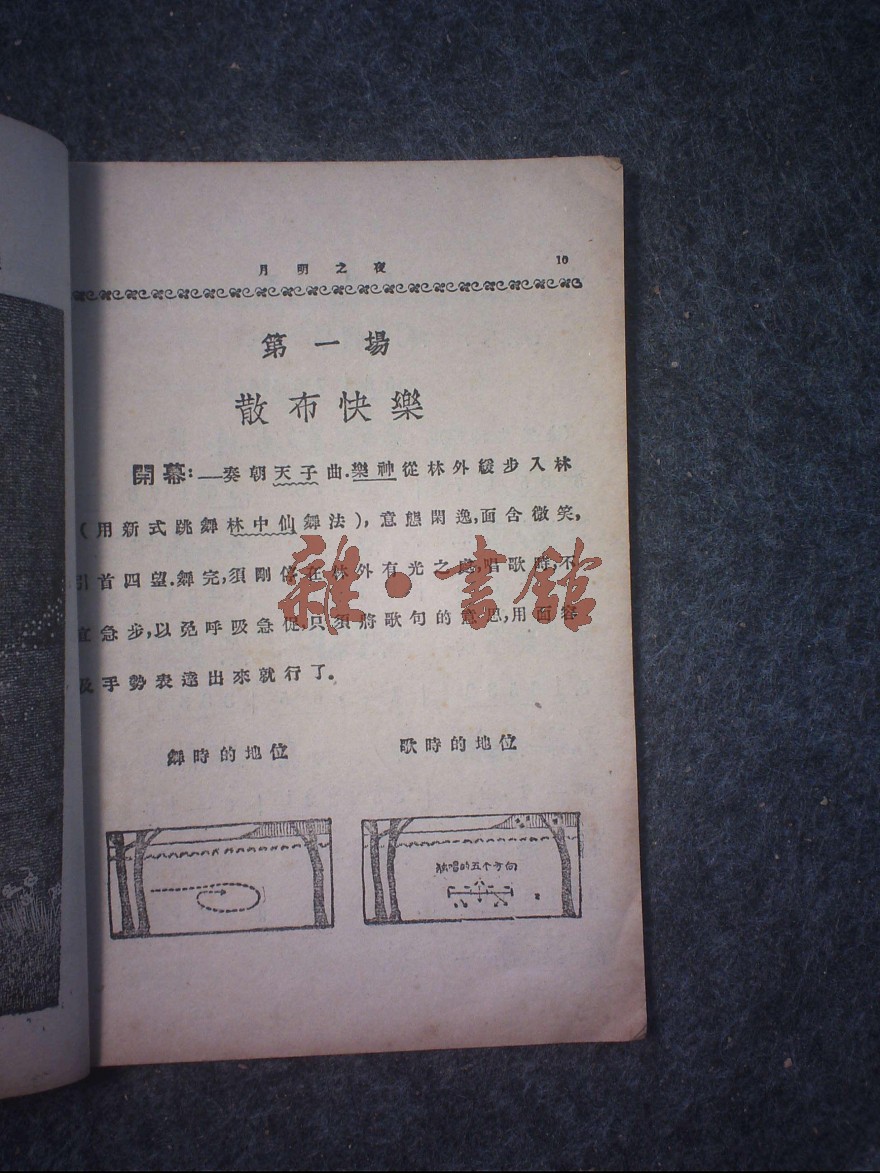 月明之夜 10
第一場
散布快樂
開幕：—奏朝天子曲.樂神從林外緩步入林
（用新式跳舞林中仙舞法），意態閑逸,面含微笑,
引首四望.舞完,須剛停在林外有光之處,唱歌時,不
宜急步,以免呼吸急促,只須將歌句的意思,用面容
及手勢表達出來就行了。
舞時的地位 歌時的地位
獨唱的五个方向
雜·書館